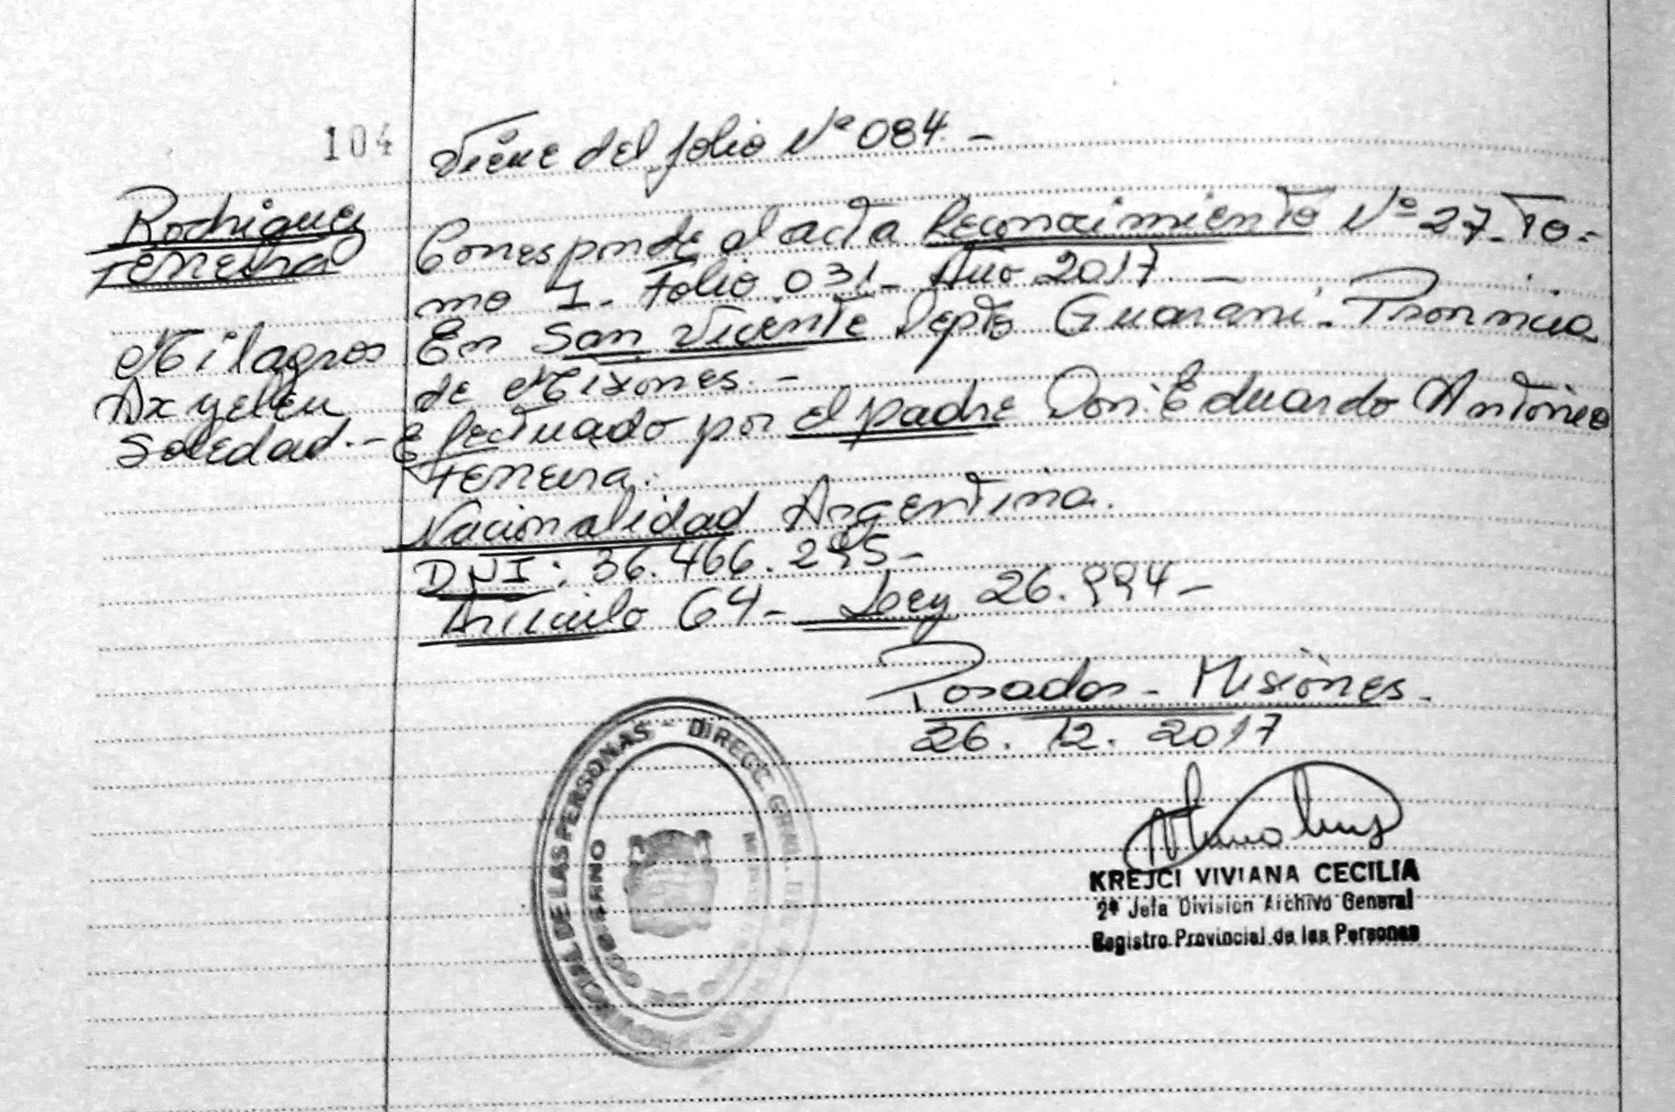 104
Viene del folio Nº 084.-
Rodriguez
Ferreira
Milagros
Axyelen
Soledad.-
Corresponde al acta Reconocimiento Nº 27-To-
mo 1- Folio 031- Año 2017.-
En San Vicente Depto Guaraní. Provincia
de Misiones.-
Efectuado por el padre Don: Eduardo Antonio
Ferreira.
Nacionalidad Argentina.
DNI: 36.466.295-
Artículo 64- Ley 26.994-
Posadas- Misiones.
26. 12. 2017
DE LAS PERSONAS - DIRECC. GRAL.
GOBIERNO
KREJCI VIVIANA CECILIA
2ª Jefa División Archivo General
Registro Provincial de las Personas